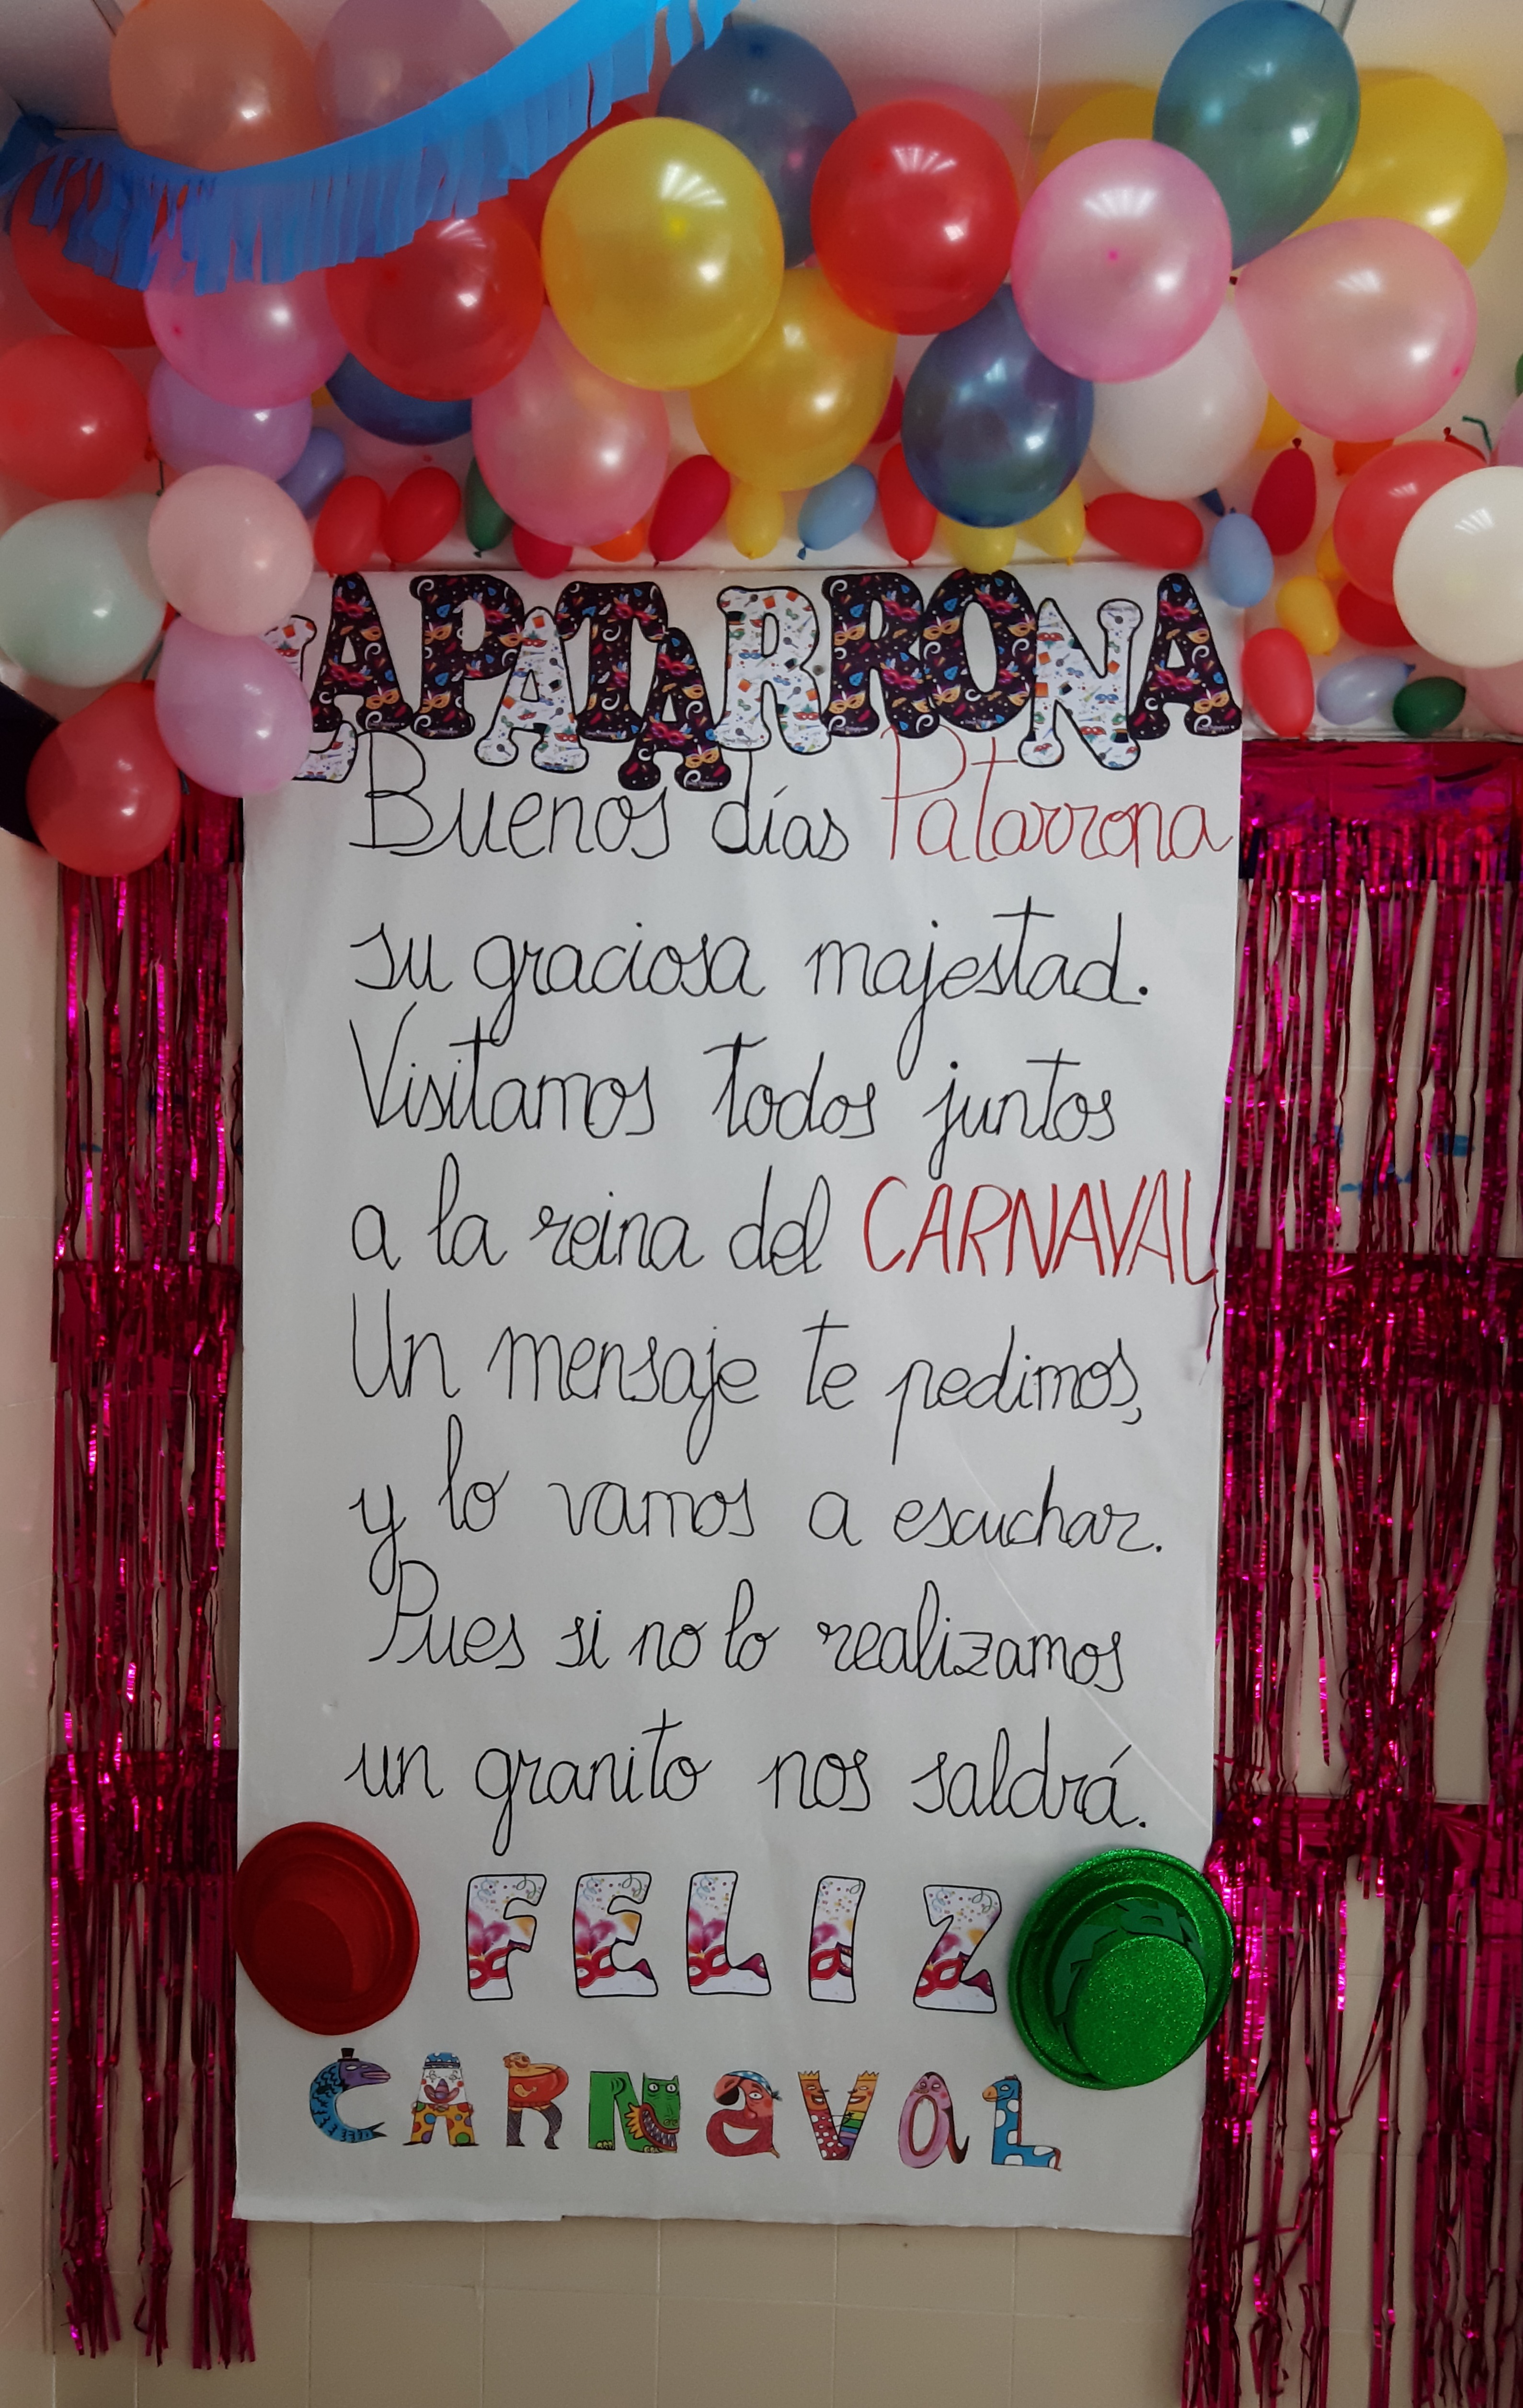 LA PATARRONA
Buenos días Patarrona
su graciosa majestad.
Visitamos todos juntos
a la reina del CARNAVAL
Un mensaje te pedimos,
y lo vamos a escuchar.
Pues si no lo realizamos
un granito nos saldrá.
FELIZ
CARNaVaL